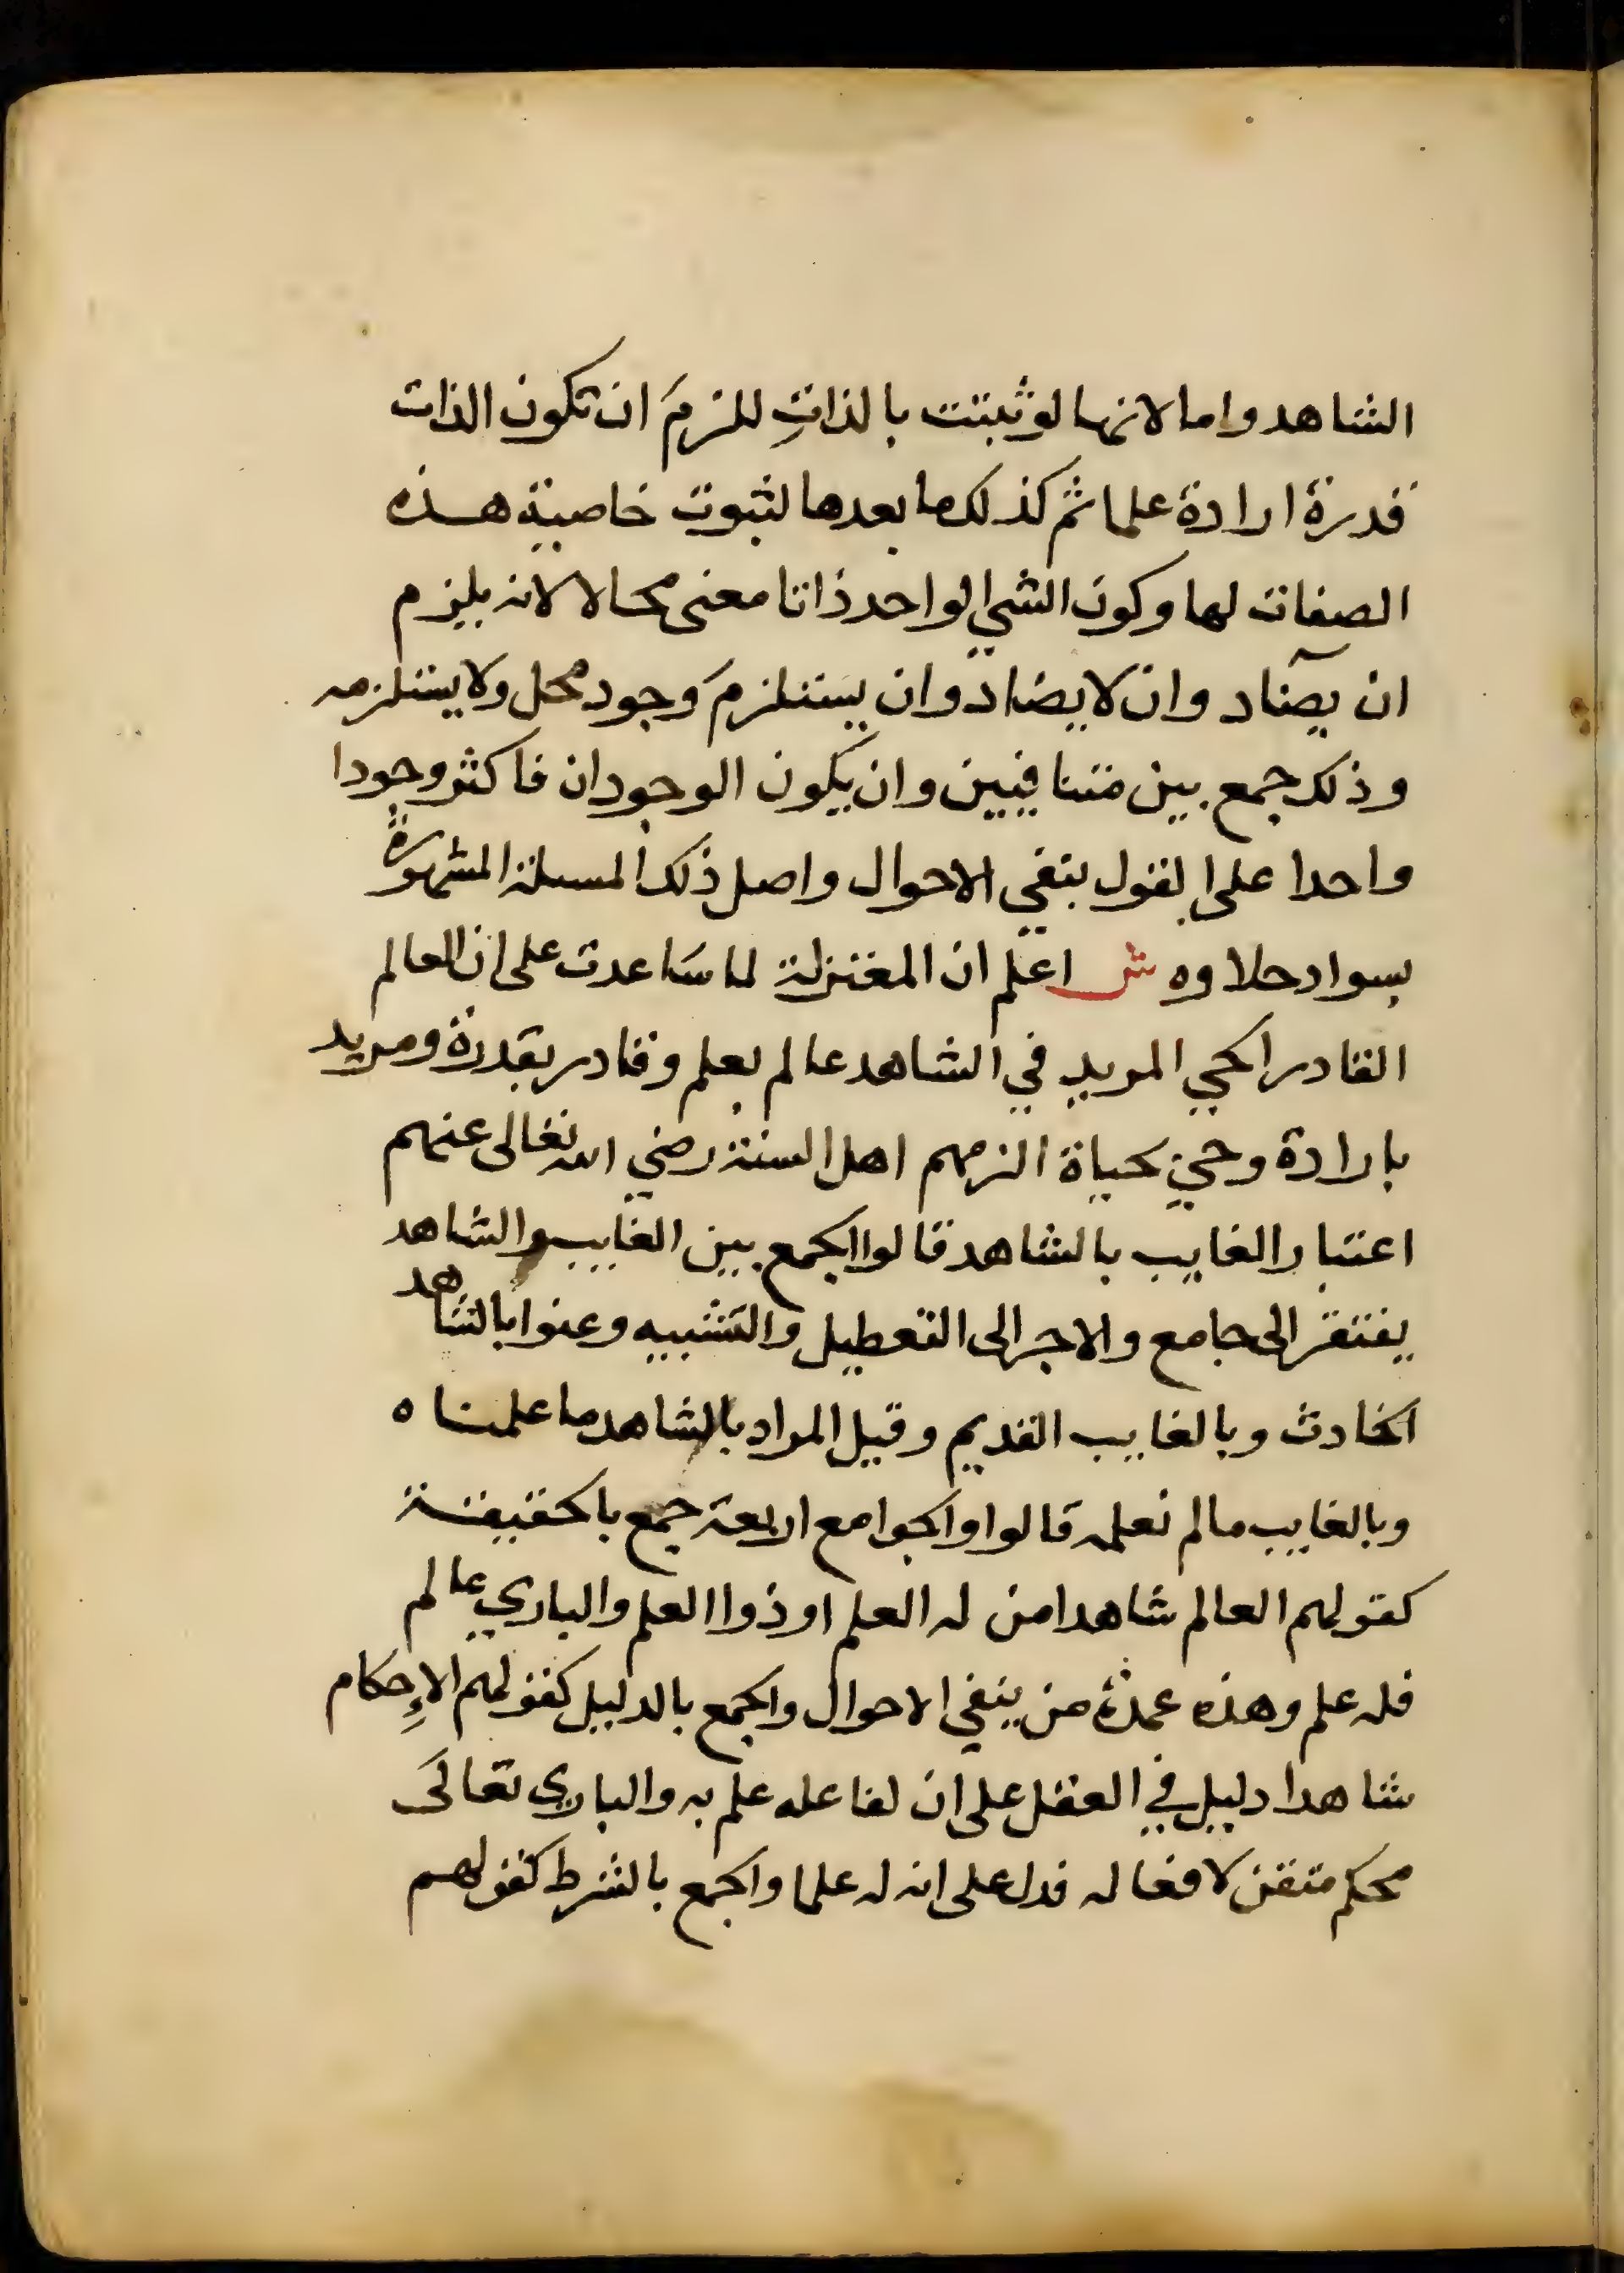 الشاهد واما لانها لو ثبتت بالذاتِ للزمَ ان تكون الذات
قدرة ارادة علما ثم كذلك ما بعدها لثبوت خاصية هذه
الصفات لها وكون الشي الواحد ذاتا معنى محالا لانه يلزم
ان يضاد وان لا يضاد وان يستلزمَ وجود محل ولا يستلزمه
وذلك جمع بين متنافيين وان يكون الوجودان فاكثر وجودا
واحدا على القول بنفي الاحوال واصل ذلك المسىلة المشهورة
بسواد حلاوه ش اعلم ان المعتزلة لما سَاعدت على ان العالم
القادر الحي المريد في الشاهد عالم بعلم وقادر بقدرة ومريد
بارادة وحي بحياة الزمهم اهل السنة رضي الله تعالى عنهم
اعتبار الغايب بالشاهد قالوا الجمع بين الغايب والشاهد
يفتقر الى جامع والا جر الى التعطيل والتشبيه وعنوا بالشاهد
الحادث وبالغايب القديم وقيل المراد بالشاهد ما علمناه
وبالغايب ما لم نعلمه قالوا والجوامع اربعة جمع بالحقيقة
كقولهم العالم شاهدا من له العلم او ذوا العلم والباري عالم
فله علم وهذه عمدة من ينفي الاحوال والجمع بالدليل كقولهم الإحكام
شاهدا دليل في العقل على ان لفاعله علم به والباري تعالَى
محكم متقن لافعاله فدل على انه له علما والجمع بالشرط كقولهم